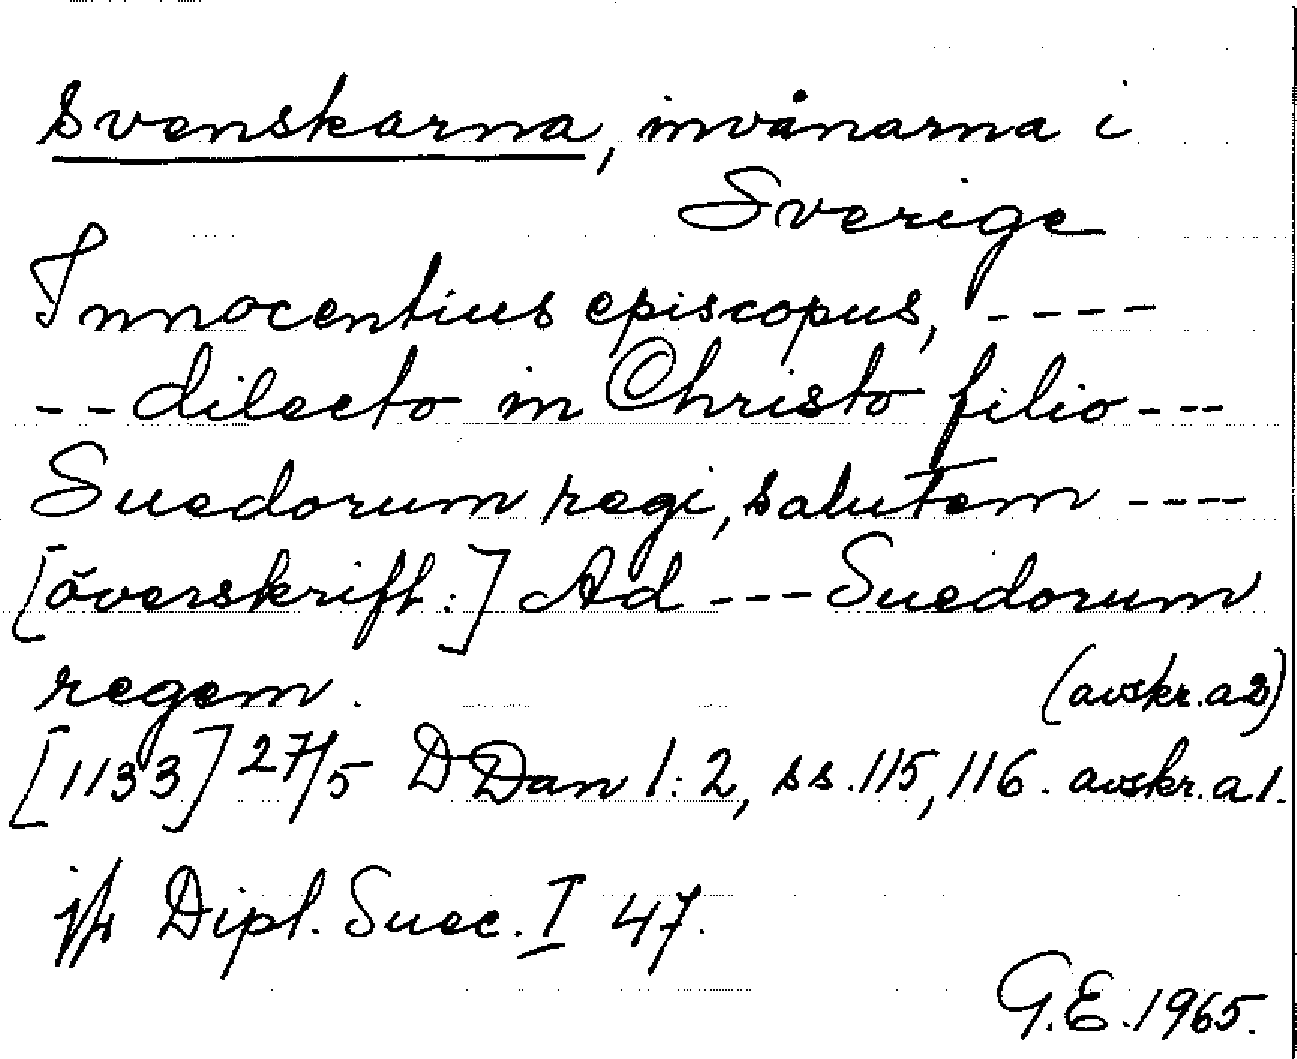 Svenskarna, invånarna i
Sverige
Innocentius episcopus, ----
--dilecto in Christo filio---
Suedorum regi, salutem ----
[överskrift:] Ad --- Suedorum
regem. (avskr. a2)
[1133] 27/5 DDan 1:2, ss. 115, 116. avskr. a1.
jfr Dipl. Suec. I 47.
G.E. 1965.